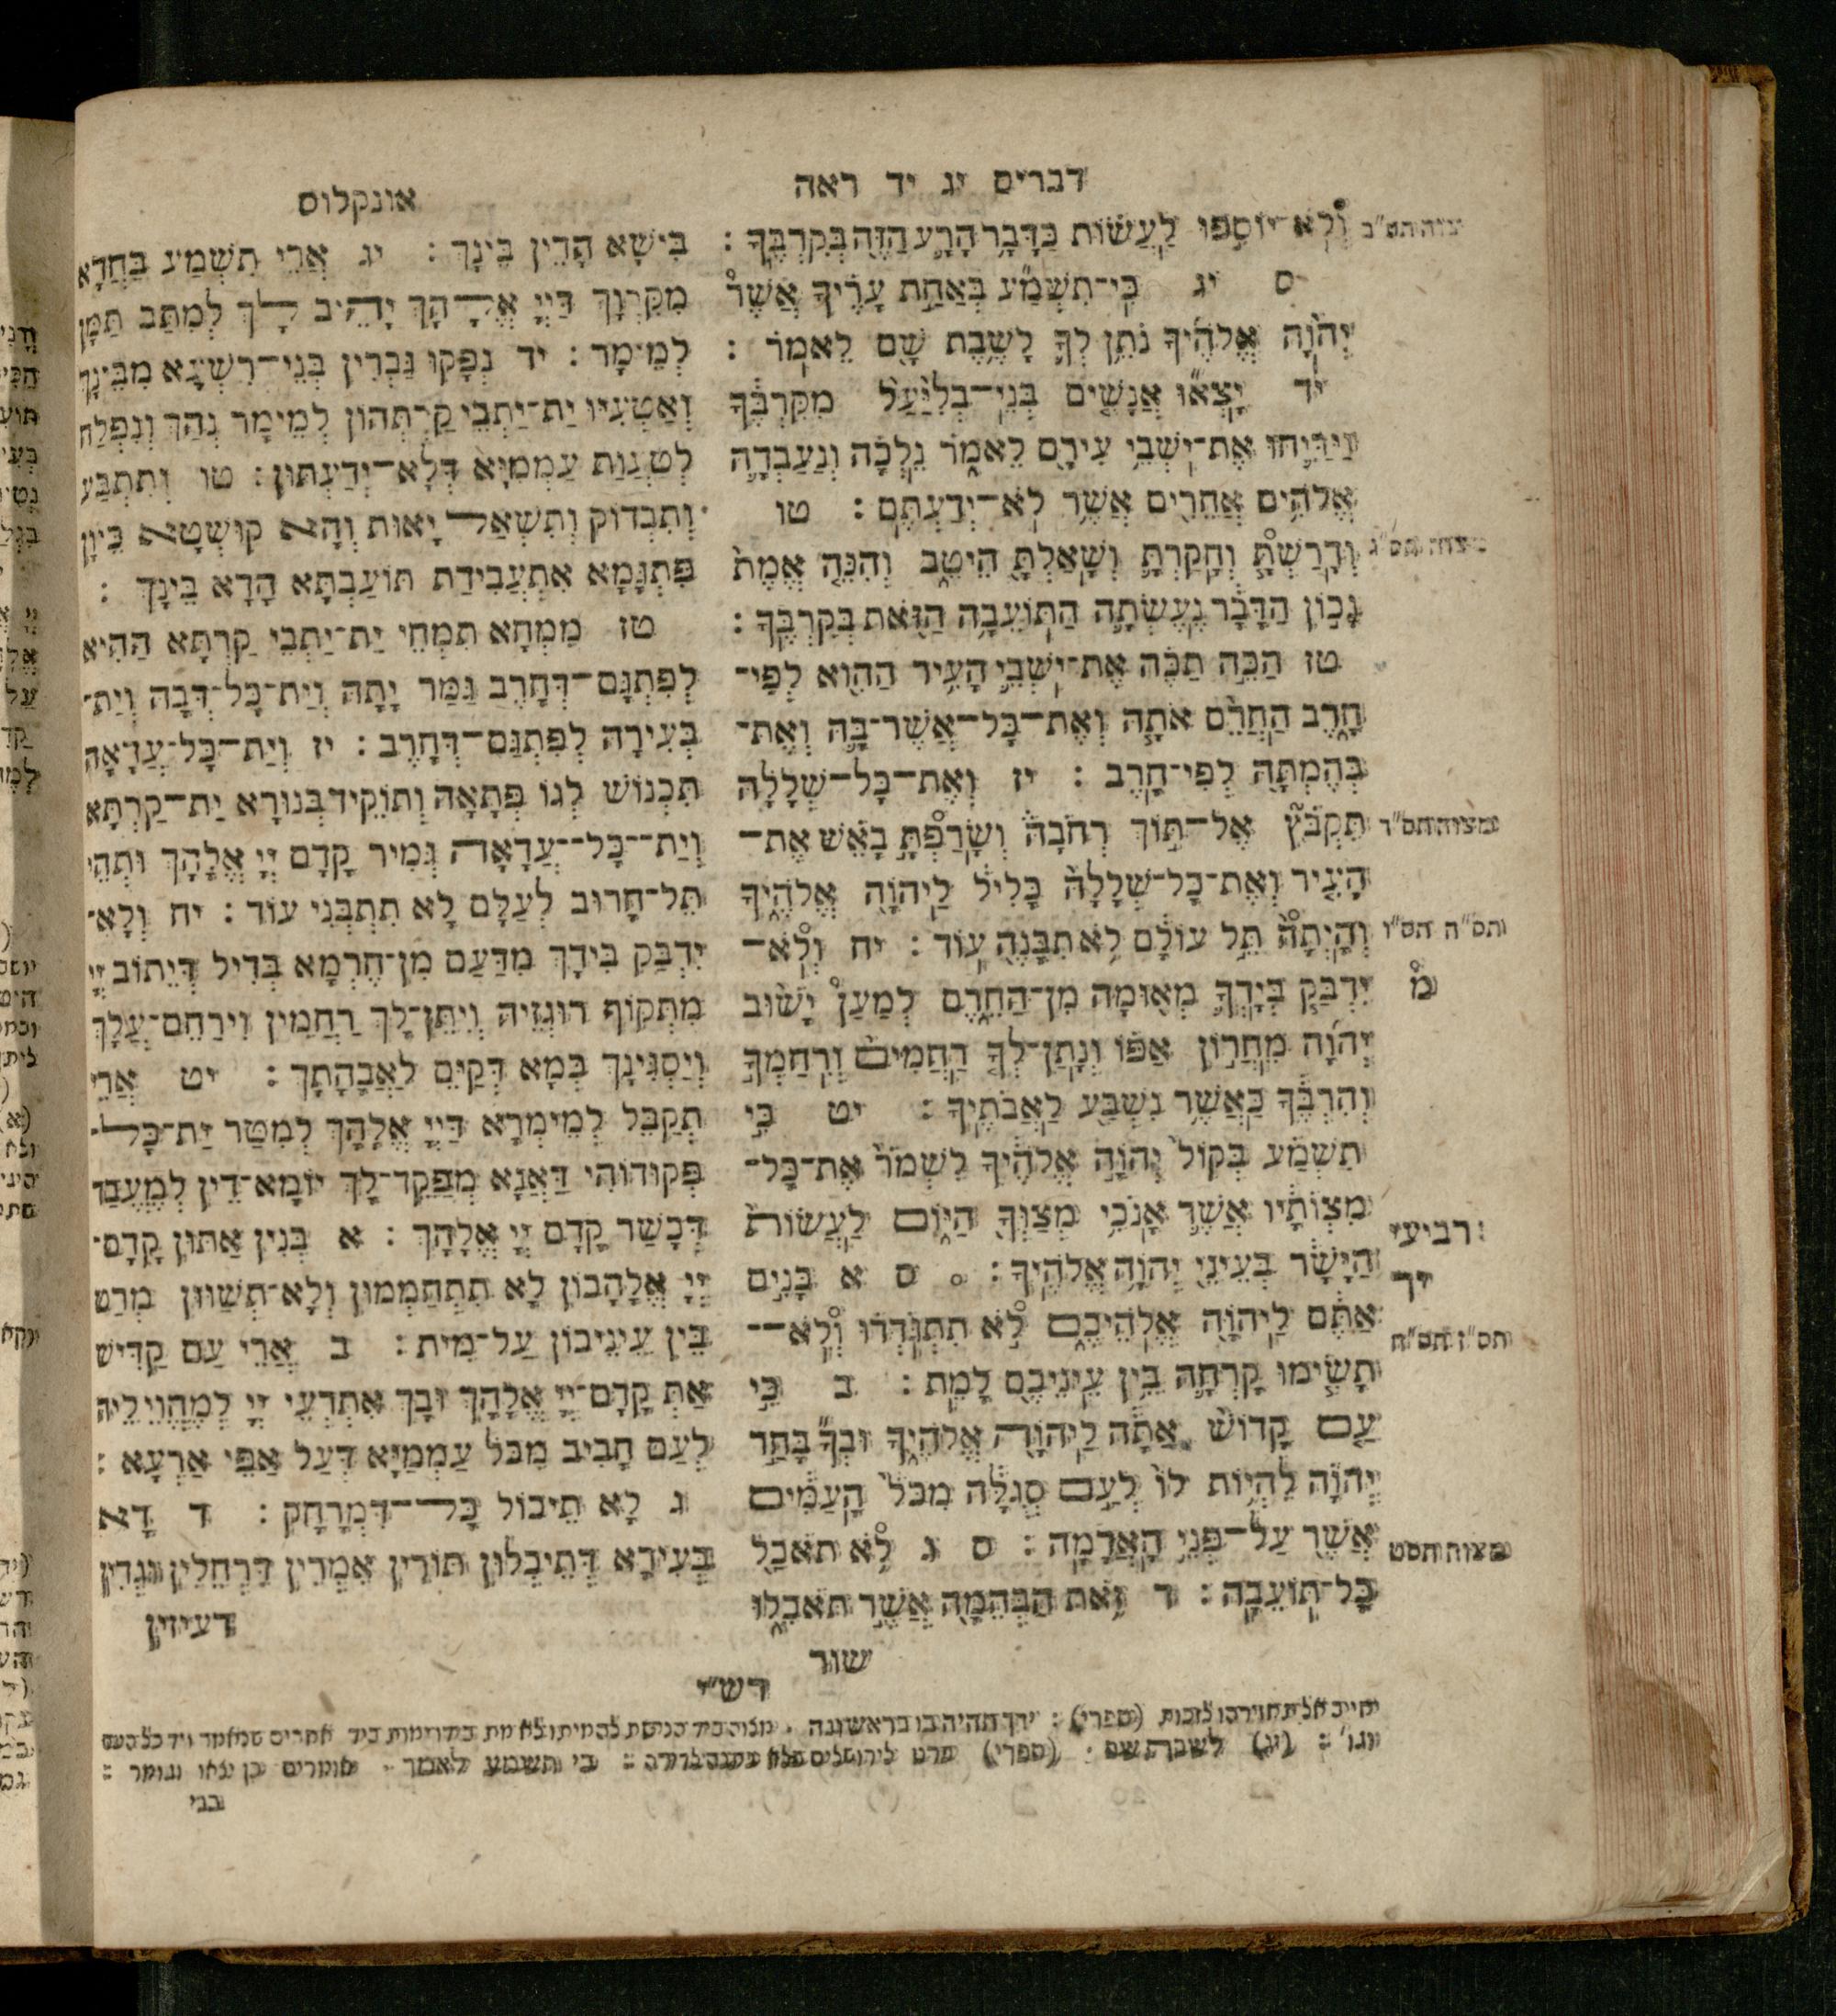 דברים יג יד ראה
וְלֹא־יוֹסִפוּ לַעֲשׂוֹת כַּדָּבָר הָרָע הַזֶּה בְּקִרְבֶּךָ :
ס יג כִּי־תִשְׁמַע בְּאַחַת עָרֶיךָ אֲשֶׁר
יְהוָה אֱלֹהֶיךָ נֹתֵן לְךָ לָשֶׁבֶת שָׁם לֵאמֹר :
יד יָצְאוּ אֲנָשִׁים בְּנֵי־בְלִיַּעַל מִקִּרְבֶּךָ
וַיַּדִּיחוּ אֶת־יֹשְׁבֵי עִירָם לֵאמֹר נֵלְכָה וְנַעַבְדָה
אֱלֹהִים אֲחֵרִים אֲשֶׁר לֹא־יְדַעְתֶּם : טו
וְדָרַשְׁתָּ וְחָקַרְתָּ וְשָׁאַלְתָּ הֵיטֵב וְהִנֵּה אֱמֶת
נָכוֹן הַדָּבָר נֶעֶשְׂתָה הַתּוֹעֵבָה הַזֹּאת בְּקִרְבֶּךָ :
טז הַכֵּה תַכֶּה אֶת־יֹשְׁבֵי הָעִיר הַהִוא לְפִי־
חָרֶב הַחֲרֵם אֹתָהּ וְאֶת־כָּל־אֲשֶׁר־בָּהּ וְאֶת־
בְּהֶמְתָּהּ לְפִי־חָרֶב : יז וְאֶת־כָּל־שְׁלָלָהּ
תִּקְבֹּץ אֶל־תּוֹךְ רְחֹבָהּ וְשָׂרַפְתָּ בָאֵשׁ אֶת־
הָעִיר וְאֶת־כָּל־שְׁלָלָהּ כָּלִיל לַיהוָה אֱלֹהֶיךָ
וְהָיְתָה תֵּל עוֹלָם לֹא תִבָּנֶה עוֹד : יח וְלֹא־
יִדְבַּק בְּיָדְךָ מְאוּמָה מִן־הַחֵרֶם לְמַעַן יָשׁוּב
יְהוָה מֵחֲרוֹן אַפּוֹ וְנָתַן־לְךָ רַחֲמִים וְרִחַמְךָ
וְהִרְבֶּךָ כַּאֲשֶׁר נִשְׁבַּע לַאֲבֹתֶיךָ : יט כִּי
תִשְׁמַע בְּקוֹל יְהוָה אֱלֹהֶיךָ לִשְׁמֹר אֶת־כָּל־
מִצְוֹתָיו אֲשֶׁר אָנֹכִי מְצַוְּךָ הַיּוֹם לַעֲשׂוֹת
הַיָּשָׁר בְּעֵינֵי יְהוָה אֱלֹהֶיךָ : ס א בָּנִים
אַתֶּם לַיהוָה אֱלֹהֵיכֶם לֹא תִתְגֹּדְדוּ וְלֹא־
תָשִׂימוּ קָרְחָה בֵּין עֵינֵיכֶם לָמֵת : ב כִּי
עַם קָדוֹשׁ אַתָּה לַיהוָה אֱלֹהֶיךָ וּבְךָ בָּחַר
יְהוָה לִהְיוֹת לוֹ לְעַם סְגֻלָּה מִכֹּל הָעַמִּים
אֲשֶׁר עַל־פְּנֵי הָאֲדָמָה : ס ג לֹא תֹאכַל
כָּל־תּוֹעֵבָה : ד זֹאת הַבְּהֵמָה אֲשֶׁר תֹּאכֵלוּ
שור
מצוה תס"ד
ותס"ה תס"ו
מ
רביעי
יד
תס"ז תס"ח
מצוה תסט
אונקלוס
בִּישָׁא הָדֵין בֵּינָךְ : יג אֲרֵי תִשְׁמַע בַּחֲדָא
מִקִּרְוָךְ דַּיְיָ אֱלָהָךְ יָהֵיב לָךְ לְמִתַּב תַּמָּן
לְמֵימָר : יד נְפָקוּ גֻּבְרִין בְּנֵי־רִשְׁעָא מִבֵּינָךְ
וְאַטְעִיוּ יַת־יַתְבֵי קַרְתְּהוֹן לְמֵימָר נְהַךְ וְנִפְלַח
לְטַעֲוַת עַמְמַיָּא דְּלָא־יְדַעְתּוּן : טו וְתִתְבַּע
וְתִבְדּוֹק וְתִשְׁאַל יָאוּת וְהָא קוּשְׁטָא כֵּיוָן
פִּתְגָּמָא אִתְעֲבִידַת תּוֹעַבְתָּא הָדָא בֵּינָךְ :
טז מִמְחָא תִמְחֵי יַת־יַתְבֵי קַרְתָּא הַהִיא
לְפִתְגָּם־דְּחָרֶב גַּמַּר יָתָהּ וְיַת־כָּל־דְּבָהּ וְיַת־
בְּעִירָהּ לְפִתְגַּם־דְּחָרֶב : יז וְיַת־כָּל־עֲדָאָהּ
תִּכְנוֹשׁ לְגוֹ פְּתָאָהּ וְתוֹקֵיד בְּנוּרָא יַת־קַרְתָּא
וְיַת־כָּל־עֲדָאָהּ גְּמִיר קֳדָם יְיָ אֱלָהָךְ וּתְהֵי
תֵּל־חָרוּב לְעָלָם לָא תִתְבְּנֵי עוֹד : יח וְלָא־
יִדְבַּק בִּידָךְ מִדַּעַם מִן־חֶרְמָא בְּדִיל דְּיֵתוּב יְיָ
מִתְּקוֹף רוּגְזֵיהּ וְיִתֵּן־לָךְ רַחֲמִין וִירַחֵם־עֲלָךְ
וְיַסְגִּינָךְ כְּמָא דְקַיֵּים לַאֲבָהָתָךְ : יט אֲרֵי
תְקַבֵּל לְמֵימְרָא דַּיְיָ אֱלָהָךְ לְמִטַּר יַת־כָּל־
פִּקּוּדוֹהִי דַּאֲנָא מְפַקֵּד־לָךְ יוֹמָא־דֵין לְמֶעֱבַד
דְּכָשַׁר קֳדָם יְיָ אֱלָהָךְ : א בְּנִין אַתּוּן קֳדָם־
יְיָ אֱלָהֲכוֹן לָא תִתְחַמְמוּן וְלָא־תְשַׁוּוּן מְרַט
בֵּין עֵינֵיכוֹן עַל־מִית : ב אֲרֵי עַם קַדִּישׁ
אַתְּ קֳדָם־יְיָ אֱלָהָךְ וּבָךְ אִתְרְעֵי יְיָ לְמֶהֱוֵי לֵיהּ
לְעַם חַבִּיב מִכֹּל עַמְמַיָּא דְּעַל אַפֵּי אַרְעָא :
ג לָא תֵיכוּל כָּל־דִּמְרָחָק : ד דָא
בְּעִירָא דְּתֵיכְלוּן תּוֹרִין אִמְּרִין דִּרְחֵלִין וְגַדְיִין
דעיזין
רש"י
יחייב אל תחזירהו לזכות (ספרי) : ידך תהיה בו בראשונה . מצוה ביד הניסת להמיתו לא מת בידו ימות ביד אחרים שנאמר ויד כל העם
וגו' : (יג) לשבת שם . (ספרי) פרט לירושלים שלא נתנה לדירה : כי תשמע לאמר . אומרים כן יצאו וגומר :
בני